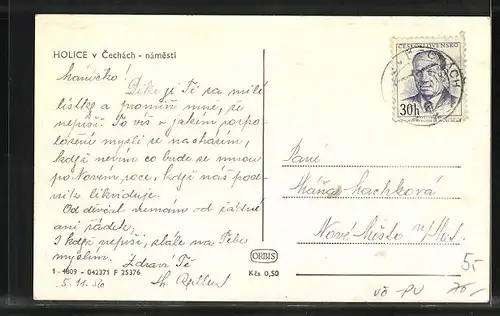 HOLICE v Čechách - náměstí
Maničko!
Děkuji Tě za milé
lístky a promiň mně, že
nepíši. To víš v jakém rozpo-
ložení mysli se nacházím,
když nevím co bude se mnou
po Novém roce, když náš pod-
nik likvidují.
Od děvčat nemám od žádné
ani řádek.
I když nepíši, stále na Tebe
myslím. Zdraví Tě
1 - 4809 - 042371 F 25376
5.11.56
ORBIS
Kčs 0,50
ČESKOSLOVENSKO
30h
Paní
Máňa Lachková
Nové Město n/Met.
5,-